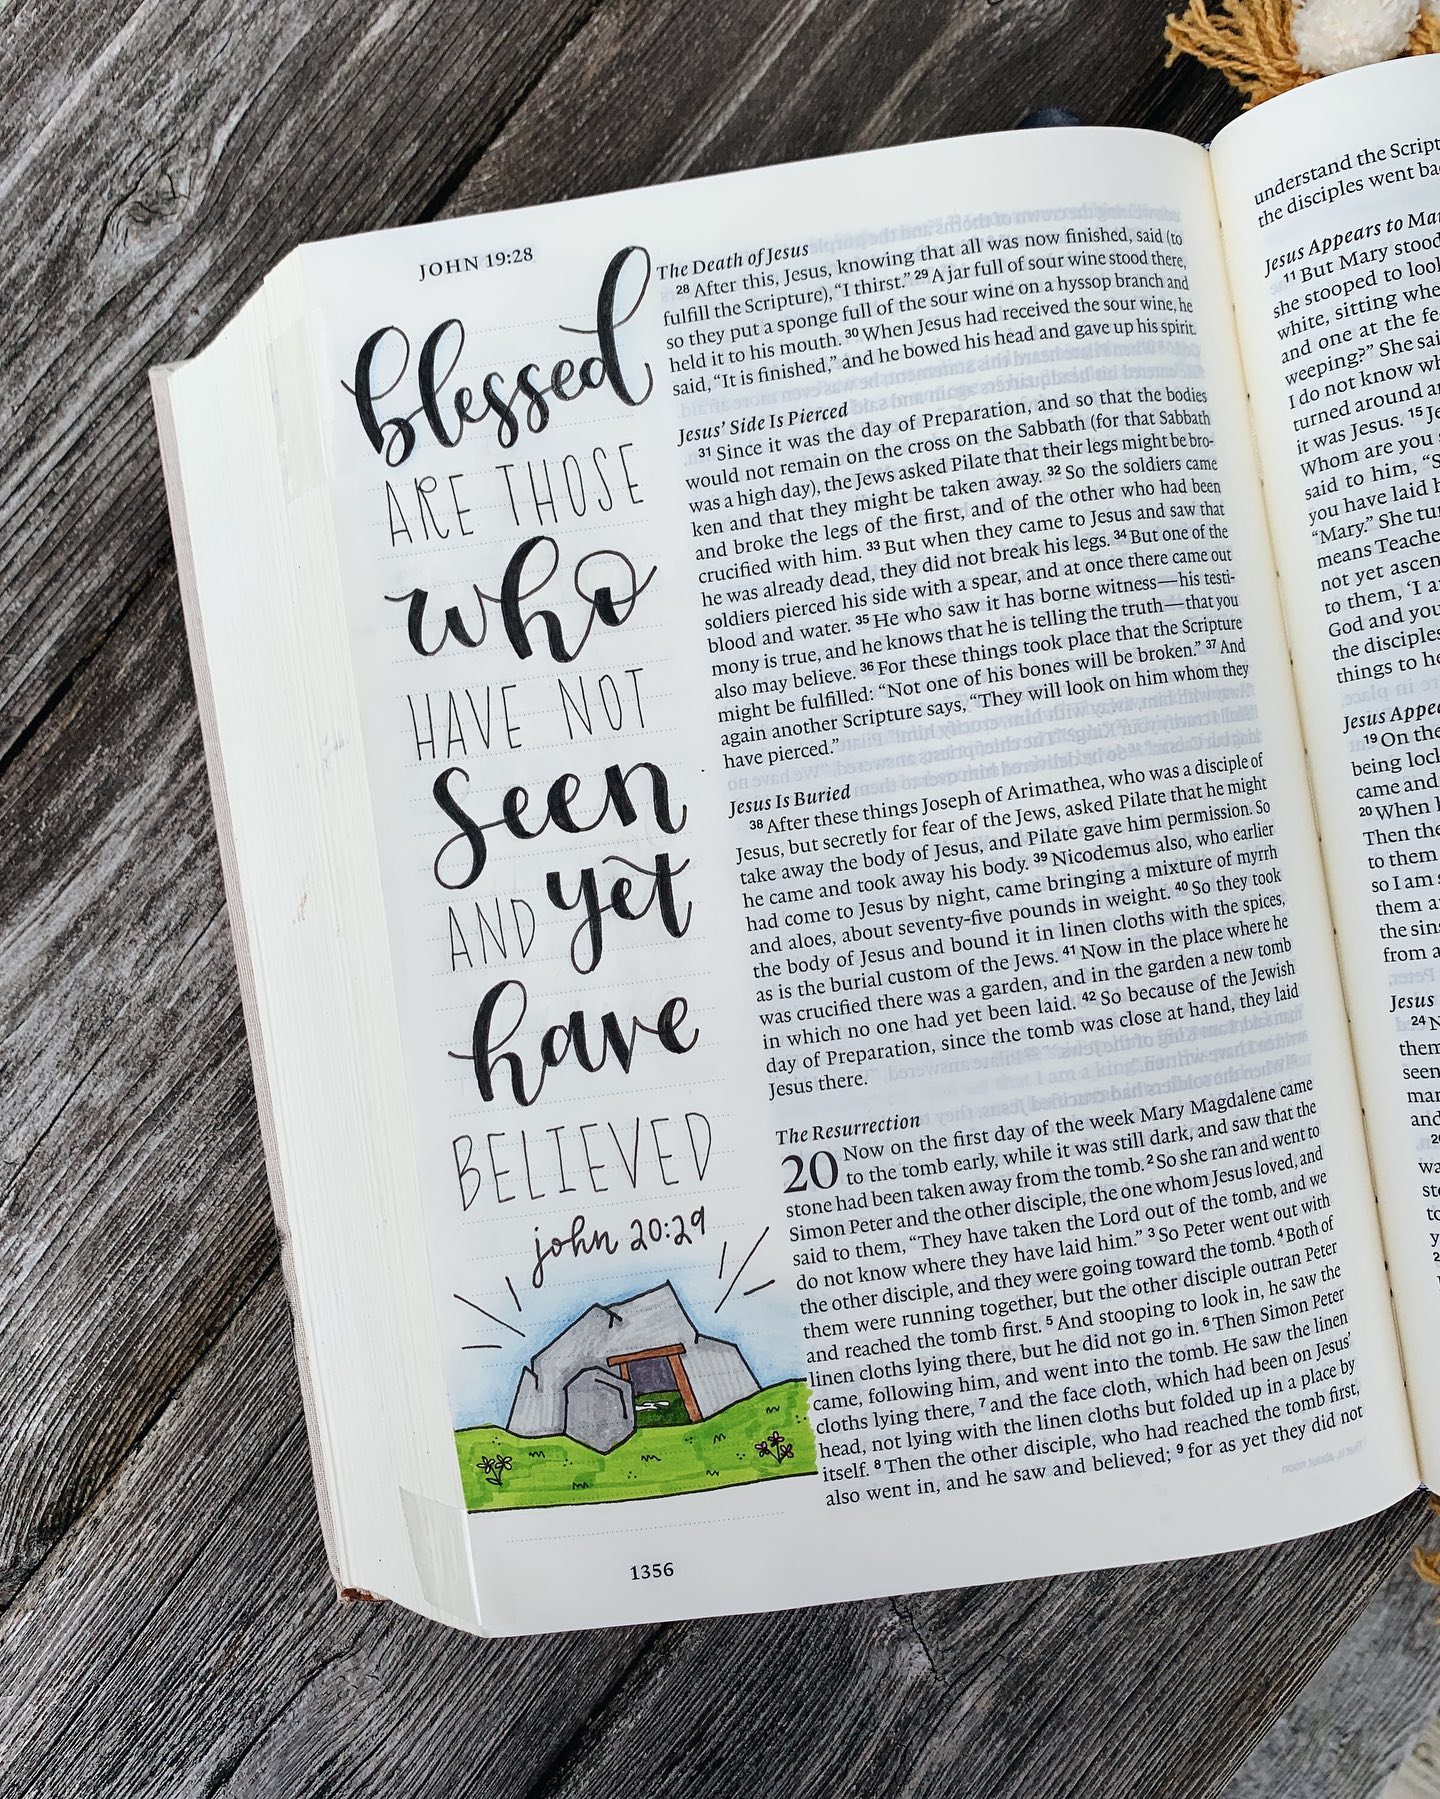 JOHN 19:28
blessed
ARE THOSE
who
HAVE NOT
seen
AND yet
have
BELIEVED
john 20:29
The Death of Jesus
28 After this, Jesus, knowing that all was now finished, said (to
fulfill the Scripture), “I thirst.” 29 A jar full of sour wine stood there,
so they put a sponge full of the sour wine on a hyssop branch and
held it to his mouth. 30 When Jesus had received the sour wine, he
said, “It is finished,” and he bowed his head and gave up his spirit.
Jesus’ Side Is Pierced
31 Since it was the day of Preparation, and so that the bodies
would not remain on the cross on the Sabbath (for that Sabbath
was a high day), the Jews asked Pilate that their legs might be bro-
ken and that they might be taken away. 32 So the soldiers came
and broke the legs of the first, and of the other who had been
crucified with him. 33 But when they came to Jesus and saw that
he was already dead, they did not break his legs. 34 But one of the
soldiers pierced his side with a spear, and at once there came out
blood and water. 35 He who saw it has borne witness—his testi-
mony is true, and he knows that he is telling the truth—that you
also may believe. 36 For these things took place that the Scripture
might be fulfilled: “Not one of his bones will be broken.” 37 And
again another Scripture says, “They will look on him whom they
have pierced.”
Jesus Is Buried
38 After these things Joseph of Arimathea, who was a disciple of
Jesus, but secretly for fear of the Jews, asked Pilate that he might
take away the body of Jesus, and Pilate gave him permission. So
he came and took away his body. 39 Nicodemus also, who earlier
had come to Jesus by night, came bringing a mixture of myrrh
and aloes, about seventy-five pounds in weight. 40 So they took
the body of Jesus and bound it in linen cloths with the spices,
as is the burial custom of the Jews. 41 Now in the place where he
was crucified there was a garden, and in the garden a new tomb
in which no one had yet been laid. 42 So because of the Jewish
day of Preparation, since the tomb was close at hand, they laid
Jesus there.
The Resurrection
20 Now on the first day of the week Mary Magdalene came
to the tomb early, while it was still dark, and saw that the
stone had been taken away from the tomb. 2 So she ran and went to
Simon Peter and the other disciple, the one whom Jesus loved, and
said to them, “They have taken the Lord out of the tomb, and we
do not know where they have laid him.” 3 So Peter went out with
the other disciple, and they were going toward the tomb. 4 Both of
them were running together, but the other disciple outran Peter
and reached the tomb first. 5 And stooping to look in, he saw the
linen cloths lying there, but he did not go in. 6 Then Simon Peter
came, following him, and went into the tomb. He saw the linen
cloths lying there, 7 and the face cloth, which had been on Jesus’
head, not lying with the linen cloths but folded up in a place by
itself. 8 Then the other disciple, who had reached the tomb first,
also went in, and he saw and believed; 9 for as yet they did not
1356
understand the
the disciples went
Jesus Appears to
11 But Mary stood
she stooped to
white, sitting
and one at the
weeping?” She
I do not know
turned around
it was Jesus. 15
Whom are you
said to him,
you have laid
“Mary.” She
means
not yet
to them, ‘I
God and
the disciples
things to
Jesus
19 On the
being
came and
20 When
Then the
to them
so I am
them
the
from a
Jesus
24
them
seen
and